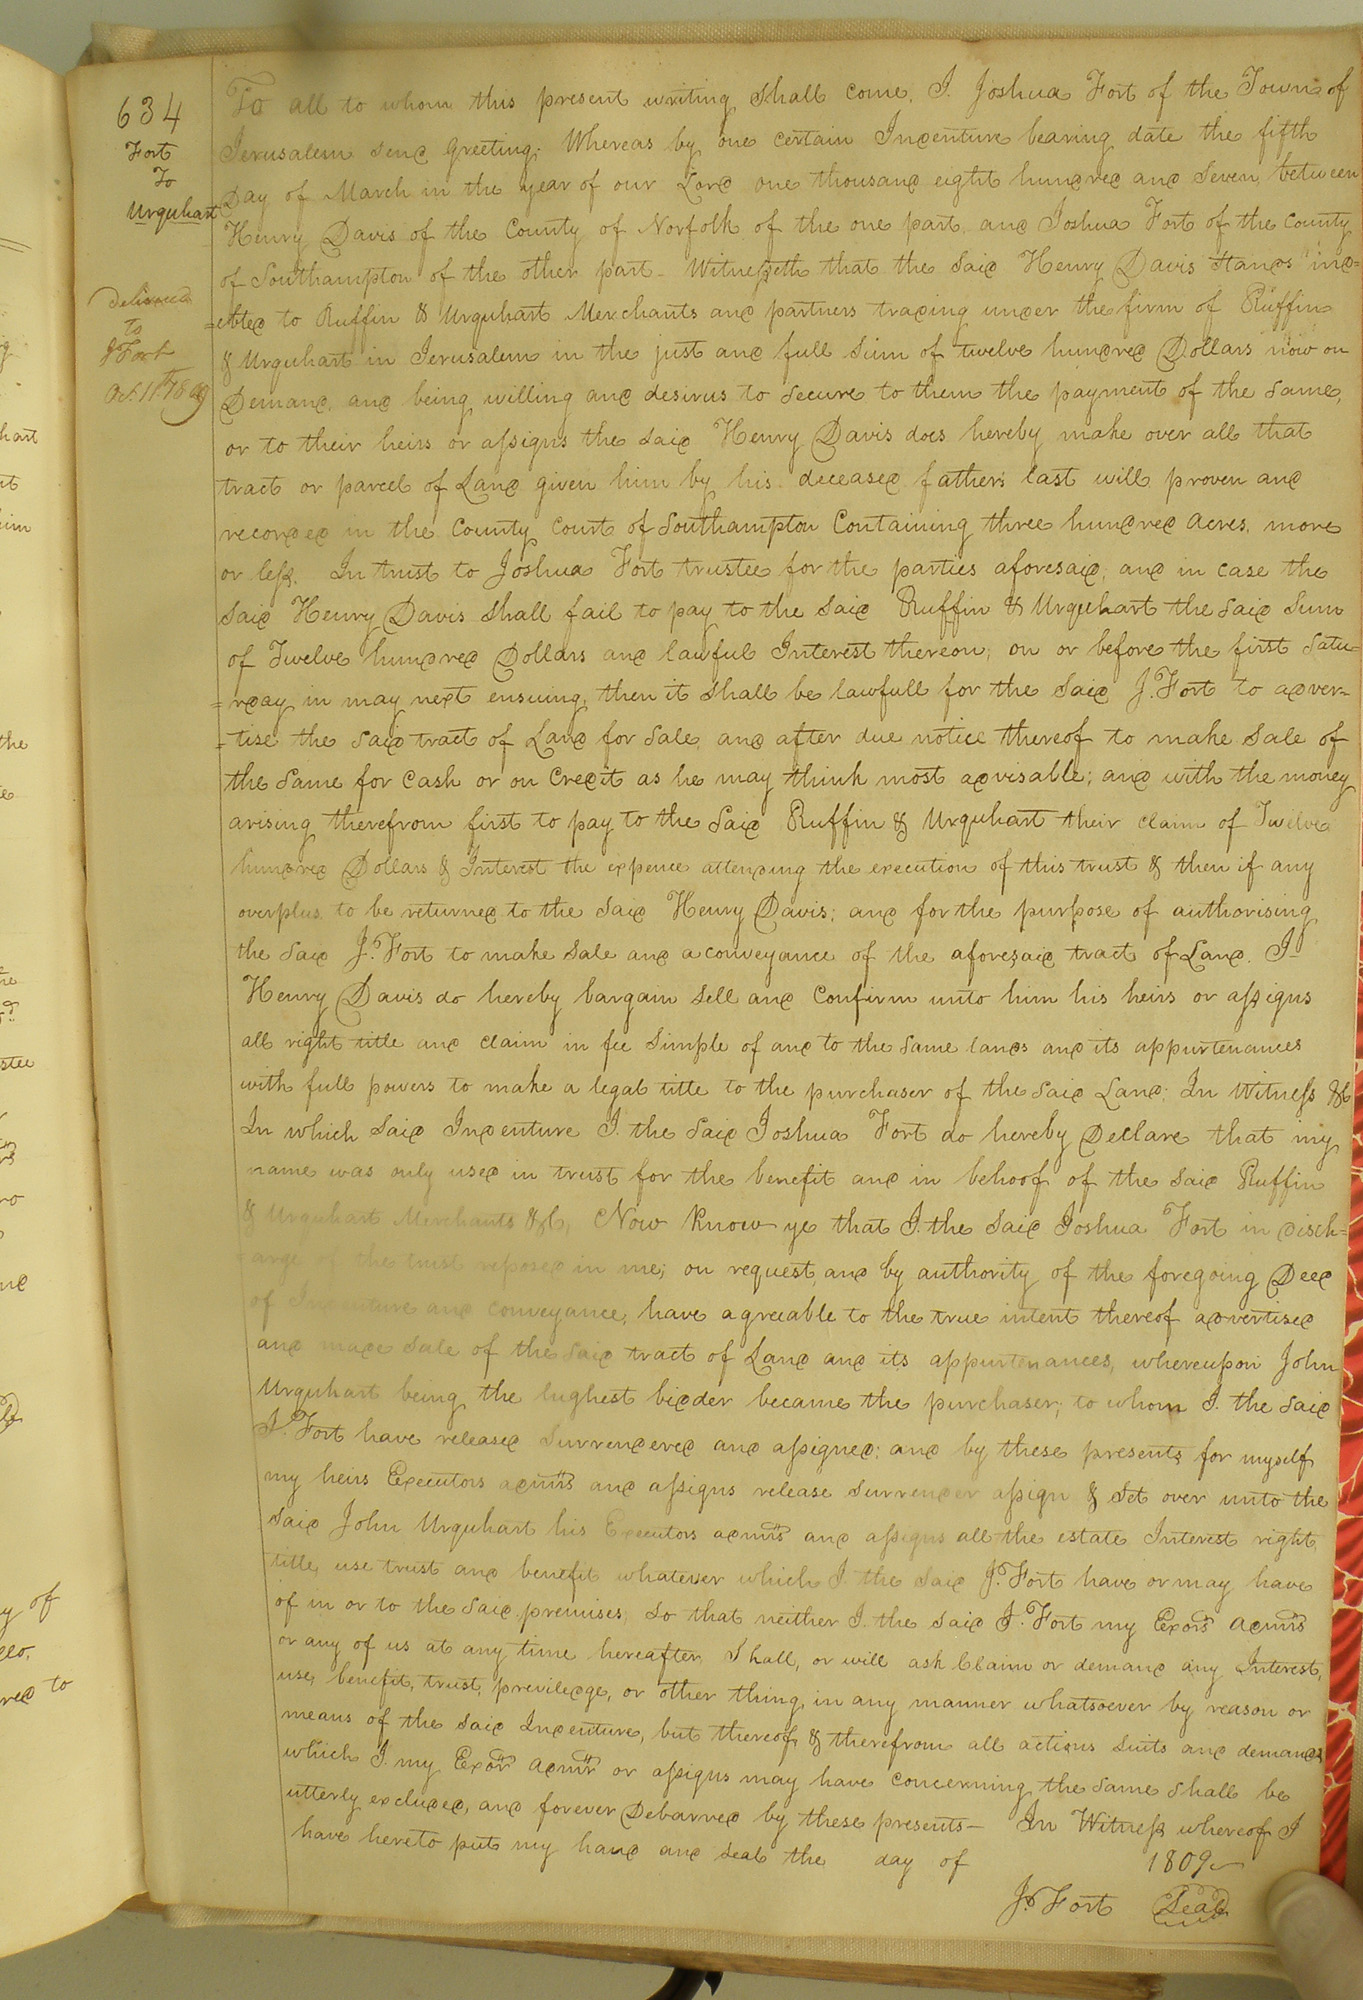 634
Fort
To
Urquhart
Delivered
to
J Fort
Oct. 11th 1809
To all to whom this present writing shall come, I. Joshua Fort of the Town of
Jerusalem send Greeting; Whereas by one certain Indenture bearing date the fifth
Day of March in the year of our Lord one thousand eight hundred and seven between
Henry Davis of the County of Norfolk of the one part, and Joshua Fort of the County
of Southampton of the other part - Witnesseth that the said Henry Davis stands ind=
=ebted to Ruffin & Urquhart Merchants and partners trading under the firm of Ruffin
& Urquhart in Jerusalem in the just and full sum of twelve hundred Dollars now on
Demand, and being willing and desirus to secure to them the payment of the same,
or to their heirs or assigns the said Henry Davis does hereby make over all that
tract or parcel of Land given him by his deceased fathers last will proven and
recorded in the County Court of Southampton Containing three hundred acres, more
or less. In trust to Joshua Fort trustee for the parties aforesaid; and in case the
said Henry Davis shall fail to pay to the said Ruffin & Urquhart the said sum
of Twelve hundred Dollars and lawful Interest thereon; on or before the first Satu=
=rday in may next ensuing, then it shall be lawfull for the said J. Fort to adver=
=tise the said tract of Land for sale, and after due notice thereof to make sale of
the same for Cash or on Credit as he may think most advisable; and with the money
arising therefrom first to pay to the said Ruffin & Urquhart their claim of Twelve
hundred Dollars & Interest the expence attending the execution of this trust & then if any
overplus to be returned to the said Henry Davis; and for the purpose of authorising
the said J. Fort to make sale and a conveyance of the aforesaid tract of Land. I
Henry Davis do hereby bargain sell and Confirm unto him his heirs or assigns
all right title and claim in fee simple of and to the same lands and its appurtenances
with full powers to make a legal title to the purchaser of the said Land; In Witness &c
In which said Indenture I. the said Joshua Fort do hereby Declare that my
name was only used in trust for the benefit and in behoof of the said Ruffin
& Urquhart Merchants &c, Now Know ye that I. the said Joshua Fort in disch=
=arge of the trust reposed in me; on request and by authority of the foregoing Deed
of Indenture and conveyance, have agreeable to the true intent thereof advertised
and made sale of the said tract of Land and its appurtenances, whereupon John
Urquhart being the highest bidder became the purchaser; to whom I. the said
J. Fort have released surrendered and assigned; and by these presents for myself
my heirs Executors admrs and assigns release surrender assign & set over unto the
said John Urquhart his Executors admrs and assigns all the estate Interest right
title, use trust and benefit whatever which I. the said J. Fort have or may have
of in or to the said premises; so that neither I. the said J. Fort my Exors admrs
or any of us at any time hereafter shall, or will ask Claim or demand any Interest,
use, benefit, trust, previledge, or other thing, in any manner whatsoever by reason or
means of the said Indenture, but thereof & therefrom all actions suits and demands
which I. my Exors admrs or assigns may have concerning the same shall be
utterly excluded, and forever Debarred by these presents - In Witness whereof I
have hereto put my hand and seal the day of 1809
J. Fort Seal